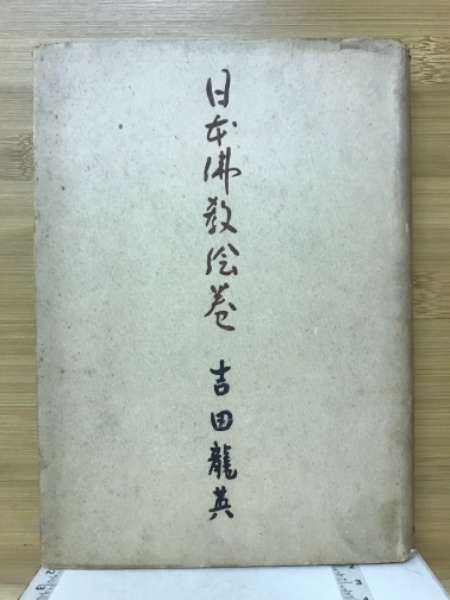 日本佛教絵巻
吉田龍英